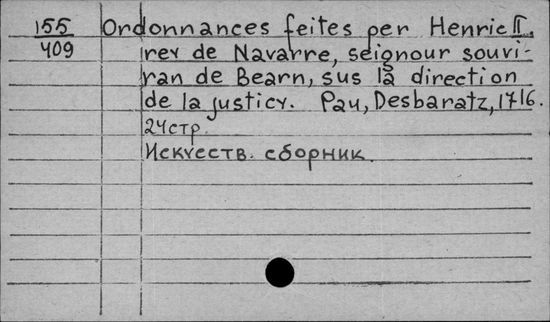 155 Ordonnances feites per Henric II.
409 rey de Navarre, seignour souvi-
ran de Bearn, sus la direction
de la justicy. Pau, Desbaratz, 1716.
24стр.
Искусств. сборник.